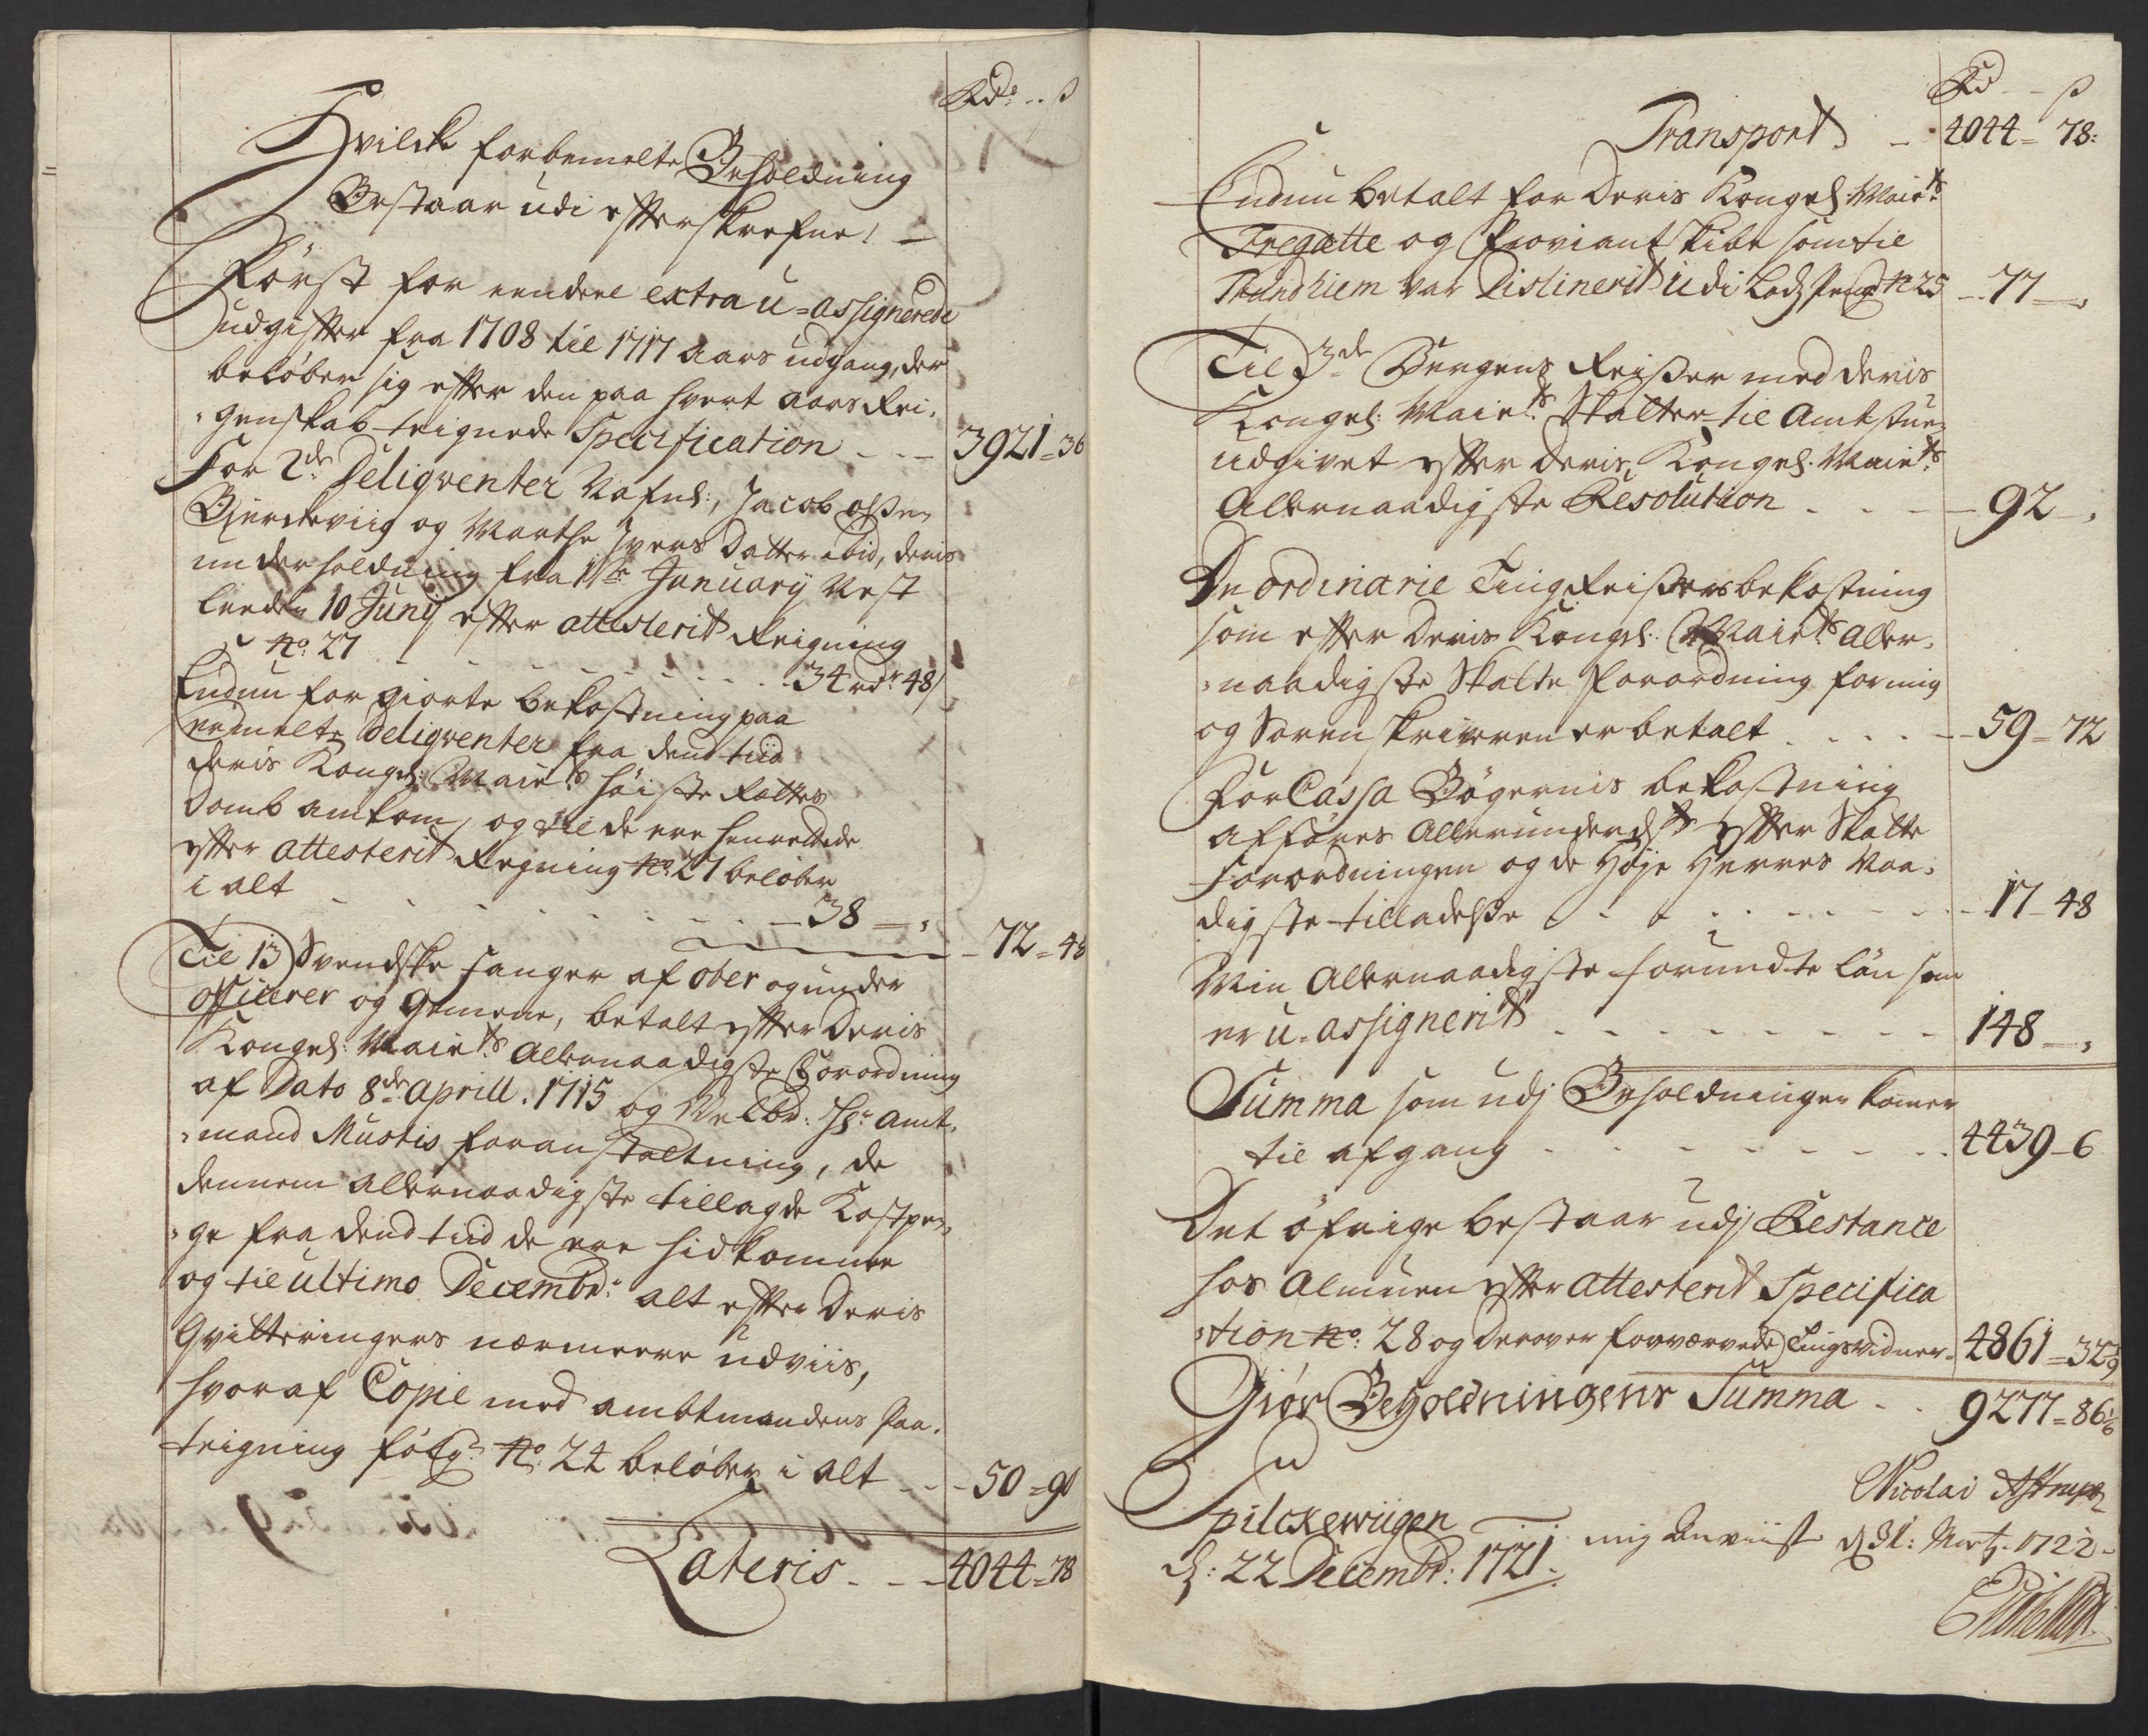 Rdr: .. ß
Hvilcke forbemelte Beholdning
Bestaar udi efterskrefne! —
Först for eendeel extra u-assignerede
udgifter fra 1708 til 1717 aars udgang, der
beløber sig efter den paa hvert aars Rei-
-genskab teignede Specification - - - 3921 = 36
For 2de Deliqventer Nafnl:, Jacob Olsen
Gierdeviig og Marthe Ivers Datter ibid, deris
underholdning fra 1te January Nest
leeden 10 Juny efter attesterit Reigning
No: 27 - - - - 34 rdr 48/
Endnu for giorte bekostning paa
bemelte Deliqventer fra dend tiid
deris Kongel: Maiets höiste Rettes
Domb ankom, og til de ere henrettede
efter attesterit Regning No: 27 beløber
i alt - - - - 38 — , - 72 = 48
Til 13 Svendske fanger af ober og under
officerer og Gemene, betalt efter Deris
Kongel: Maiets Allernaadigste Forordning
af Dato 8de Aprill. 1715 og Velbd: Hr: Amt-
-mand Mustis foranstaltning, de
dennem allernaadigste tillagde Kostpen-
-ge fra dend tiid de ere hidkomne
og til ultimo Decembr: alt efter Deris
Qvitteringers nærmeere udviis,
hvoraf Copie med ambtmandens paa-
teigning følger No: 24 beløber i alt - - - 50 = 90
Lateris - - - 4044 = 78
Rd - - ß
Transport - 4044 = 78:
Endnu betalt for Deris Kongel Maiets
Fregatte og Proviant skibe som til
Trundhiem var Distinerit udi Lodspenge No 25 - - 77 — ,
Til 3de Bergens Reiser med deris
Kongel: Maiets Skatter til Amtstuen
udgivet efter Deris Kongel. Maiets
Allernaadigste Resolution - - - - 92 - ,
De ordinarie Ting Reisers bekostning
som efter Deris Kongel: Maiets Aller-
-naadigste Skatte Forordning for mig
og Sorenskriveren er betalt - - - - 59 = 72
For Cassa Bögernis bekostning
afføres Allerunderdt efter Skatte
forordningen og de Höje Herres Naa-
digste tilladelse - - - - - - 17 - 48
Min Allernaadigste forundte lön som
er u-assignerit - - - - - - 148 — ,
Summa som udj Beholdningen komer
til afgang - - - - - - 4439 - 6
Det öfrige bestaar udj Restance
hos Almuen efter attesterit Specifica
-tion No: 28 og derover forværvede Tingsvidner - 4861 = 32
Giör Beholdningens Summa - - 9277 = 86
Spilckeviigen
d: 22 Decembr: 1721.
Nicolai Astrup
mig Anviist d 31: Martj. 1722 -